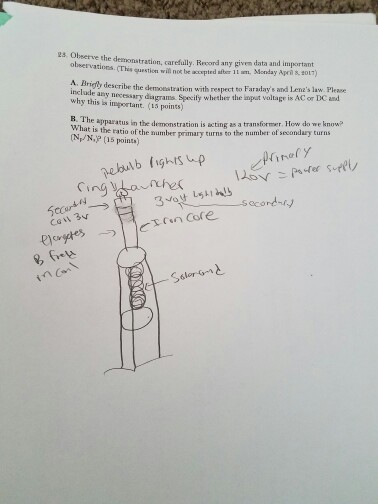 23. Observe the demonstration, carefully. Record any given data and important
observations. (This question will not be accepted after 11 am, Monday April 3, 2017)
A. Briefly describe the demonstration with respect to Faraday's and Lenz's law. Please
include any necessary diagrams. Specify whether the input voltage is AC or DC and
why this is important. (15 points)
B. The apparatus in the demonstration is acting as a transformer. How do we know?
What is the ratio of the number primary turns to the number of secondary turns
(Nₚ/Nₛ)? (15 points)
lights up
Primary
120V = power supply
Ring Launcher
3 volt light bulb
secondary
Secondary
coil 3v
Iron core
Elongates
B field
in coil
Solenoid